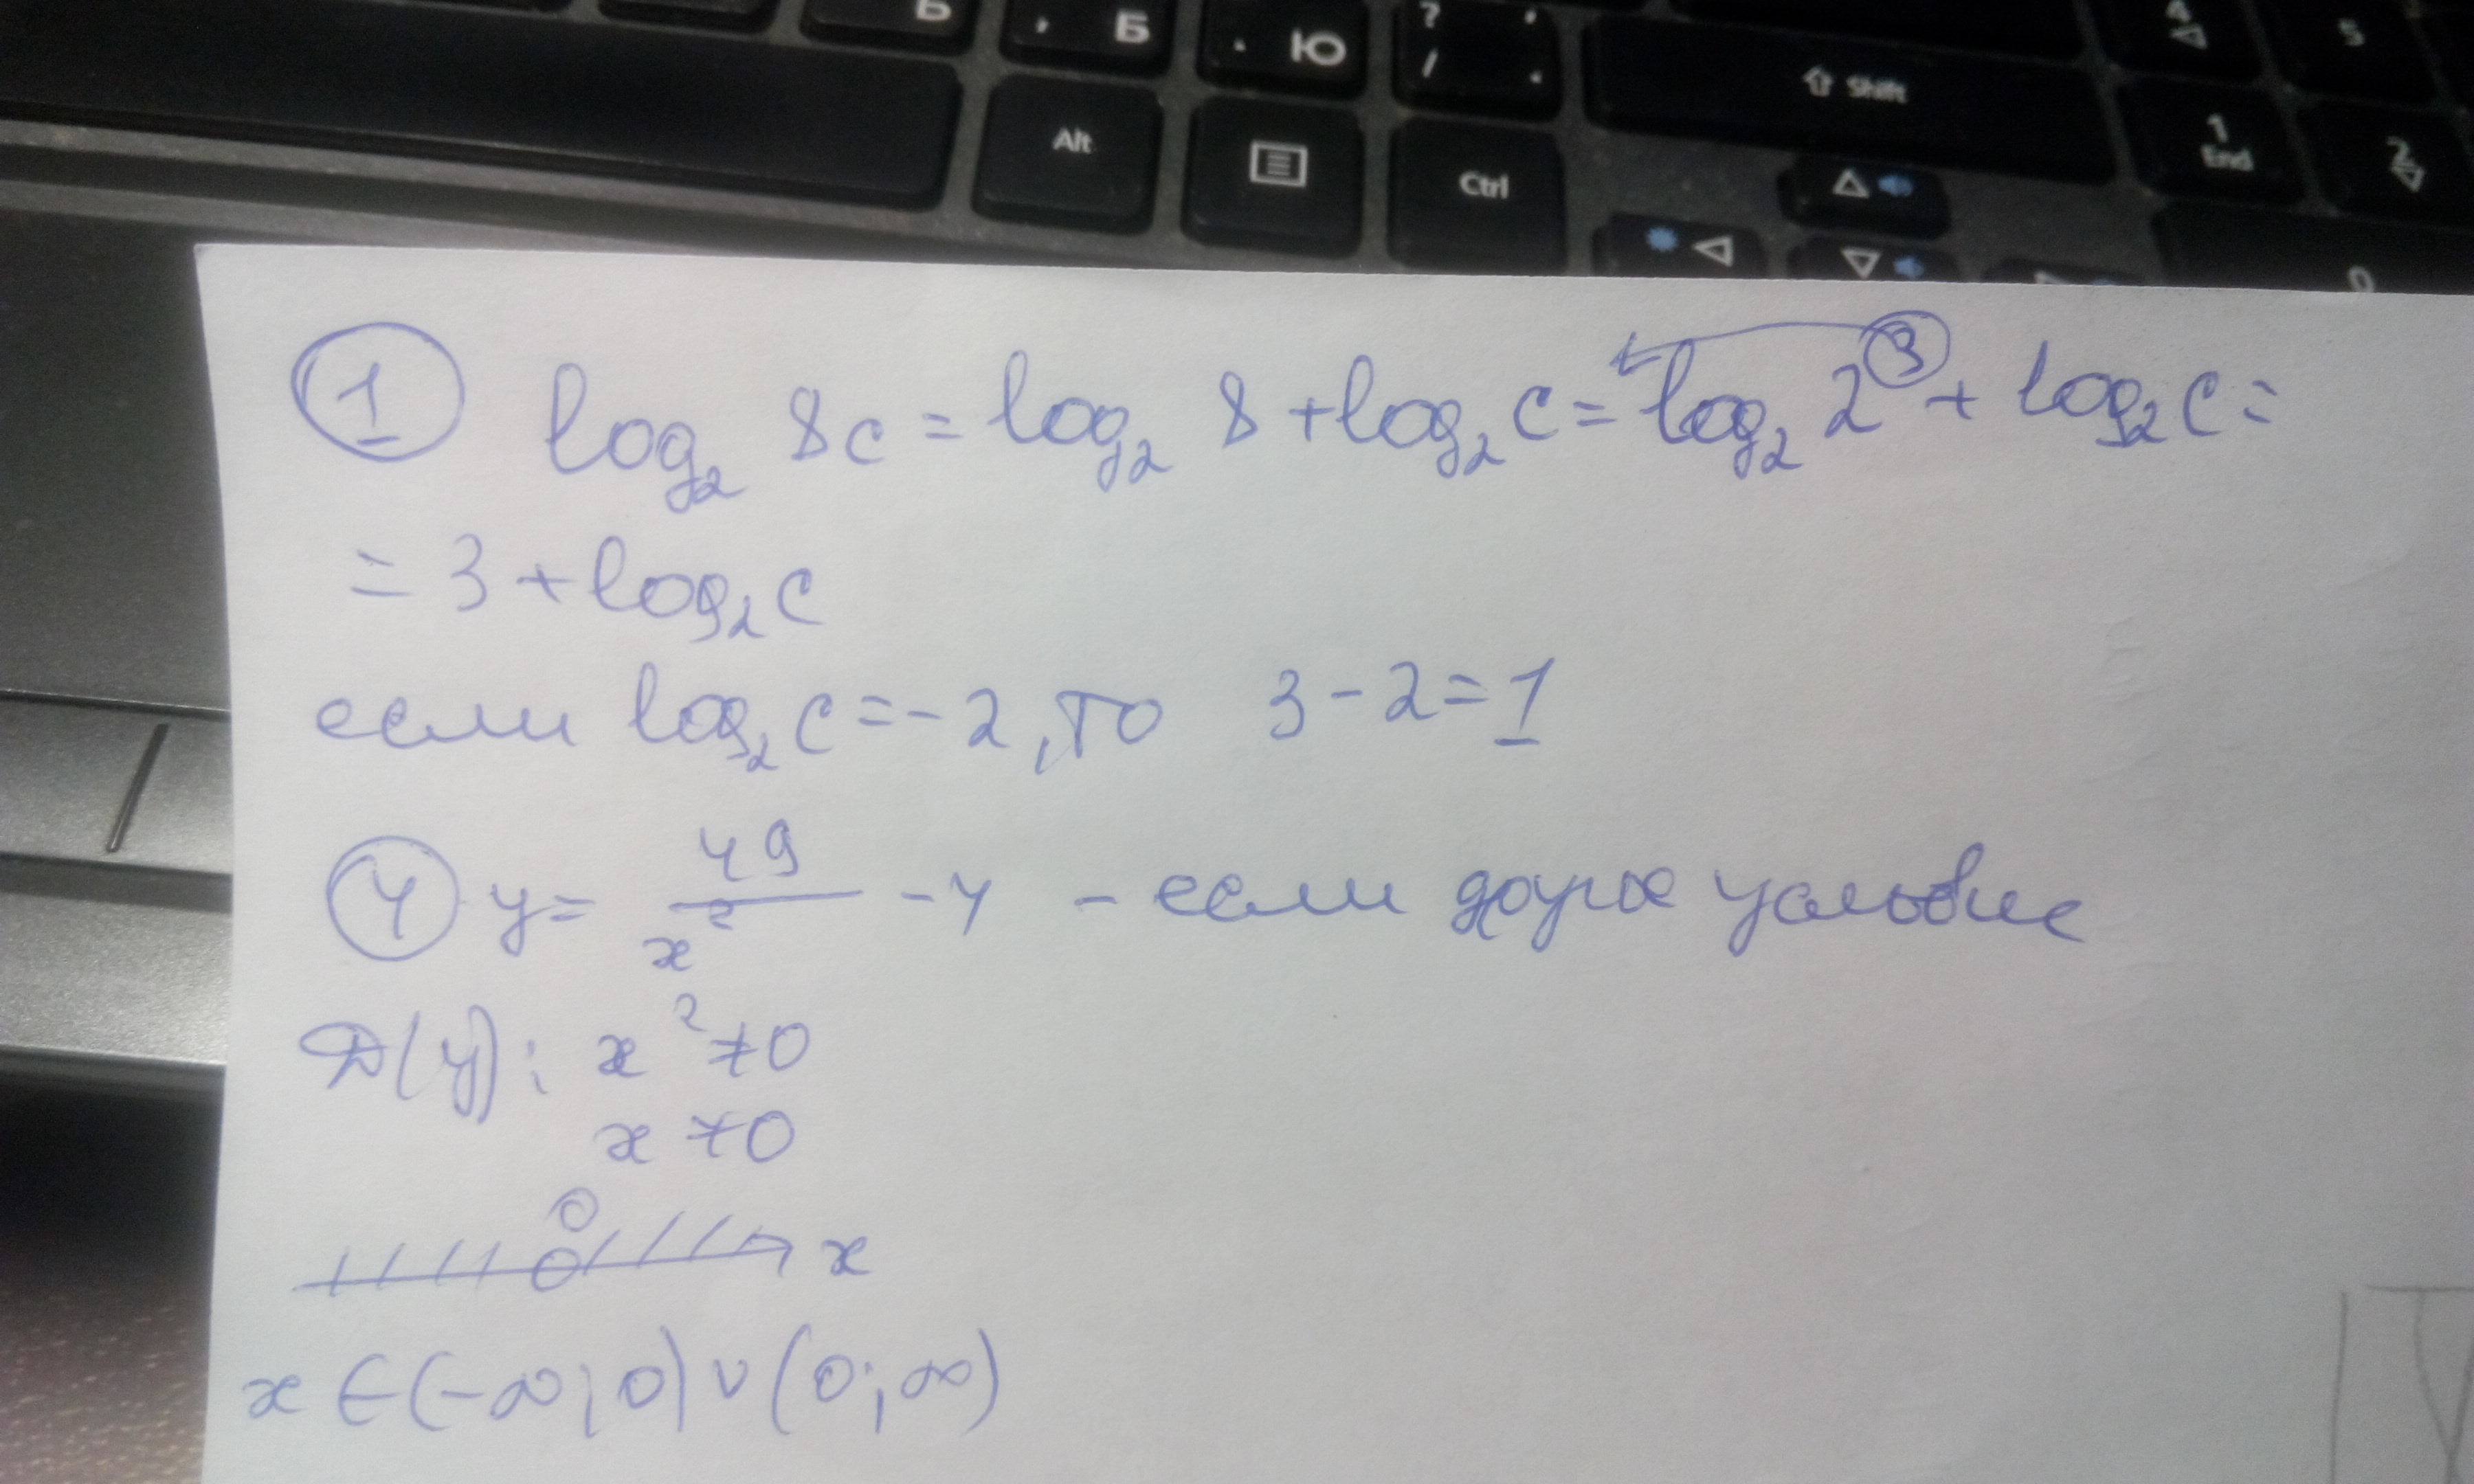 Ь , Б . Ю ? / ' . Shift 4 5
Alt Ctrl 1 End 2
0
1 log₂ 8c = log₂ 8 + log₂ c = log₂ 2³ + log₂ c =
= 3 + log₂ c
если log₂ c = -2, то 3 - 2 = 1
4 y = 49/x² - 4 - если другое условие
D(y): x² ≠ 0
x ≠ 0
0
x
x ∈ (-∞; 0) ∪ (0; ∞)